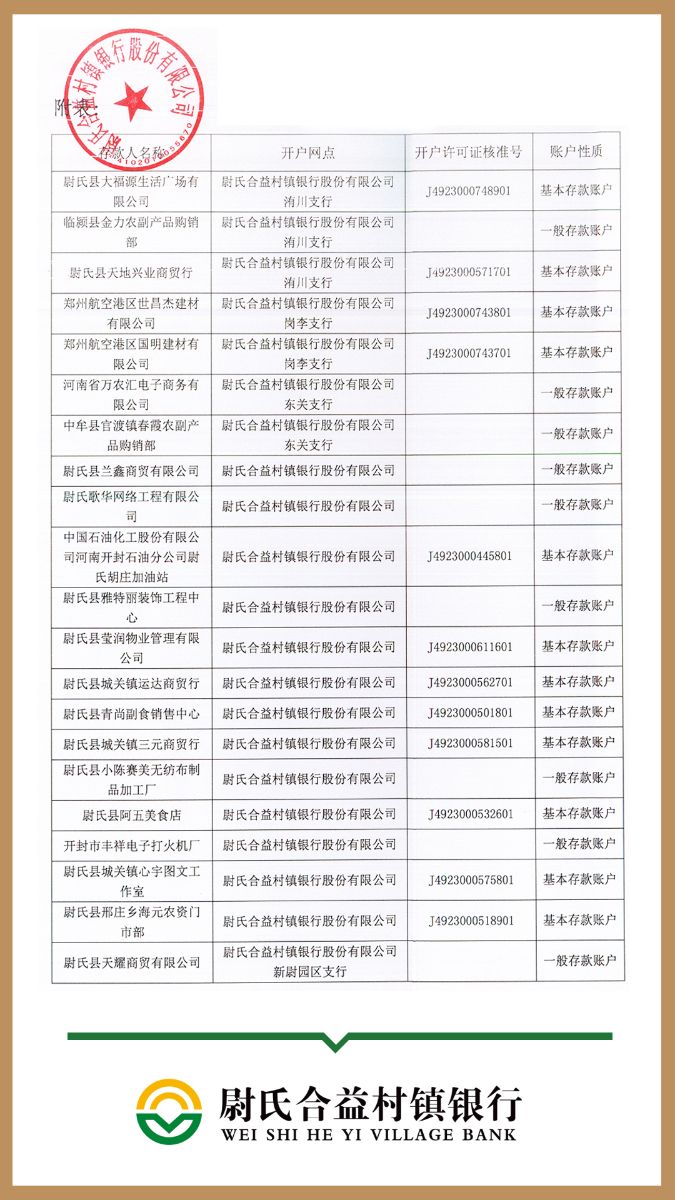 尉氏合益村镇银行股份有限公司
4102010055670
附表：
存款人名称 开户网点 开户许可证核准号 账户性质
尉氏县大福源生活广场有 尉氏合益村镇银行股份有限公司
限公司 洧川支行 J4923000748901 基本存款账户
临颍县金力农副产品购销 尉氏合益村镇银行股份有限公司
部 洧川支行 一般存款账户
尉氏县天地兴业商贸行 尉氏合益村镇银行股份有限公司
洧川支行 J4923000571701 基本存款账户
郑州航空港区世昌杰建材 尉氏合益村镇银行股份有限公司
有限公司 岗李支行 J4923000743801 基本存款账户
郑州航空港区国明建材有 尉氏合益村镇银行股份有限公司
限公司 岗李支行 J4923000743701 基本存款账户
河南省万农汇电子商务有 尉氏合益村镇银行股份有限公司
限公司 东关支行 一般存款账户
中牟县官渡镇春霞农副产 尉氏合益村镇银行股份有限公司
品购销部 东关支行 一般存款账户
尉氏县兰鑫商贸有限公司 尉氏合益村镇银行股份有限公司 一般存款账户
尉氏歌华网络工程有限公
司 尉氏合益村镇银行股份有限公司 一般存款账户
中国石油化工股份有限公
司河南开封石油分公司尉 尉氏合益村镇银行股份有限公司 J4923000445801 基本存款账户
氏胡庄加油站
尉氏县雅特丽装饰工程中
心 尉氏合益村镇银行股份有限公司 一般存款账户
尉氏县莹润物业管理有限
公司 尉氏合益村镇银行股份有限公司 J4923000611601 基本存款账户
尉氏县城关镇运达商贸行 尉氏合益村镇银行股份有限公司 J4923000562701 基本存款账户
尉氏县青尚副食销售中心 尉氏合益村镇银行股份有限公司 J4923000501801 基本存款账户
尉氏县城关镇三元商贸行 尉氏合益村镇银行股份有限公司 J4923000581501 基本存款账户
尉氏县小陈赛美无纺布制
品加工厂 尉氏合益村镇银行股份有限公司 一般存款账户
尉氏县阿五美食店 尉氏合益村镇银行股份有限公司 J4923000532601 基本存款账户
开封市丰祥电子打火机厂 尉氏合益村镇银行股份有限公司 一般存款账户
尉氏县城关镇心宇图文工
作室 尉氏合益村镇银行股份有限公司 J4923000575801 基本存款账户
尉氏县邢庄乡海元农资门
市部 尉氏合益村镇银行股份有限公司 J4923000518901 基本存款账户
尉氏县天耀商贸有限公司 尉氏合益村镇银行股份有限公司
新尉园区支行 一般存款账户
尉氏合益村镇银行
WEI SHI HE YI VILLAGE BANK